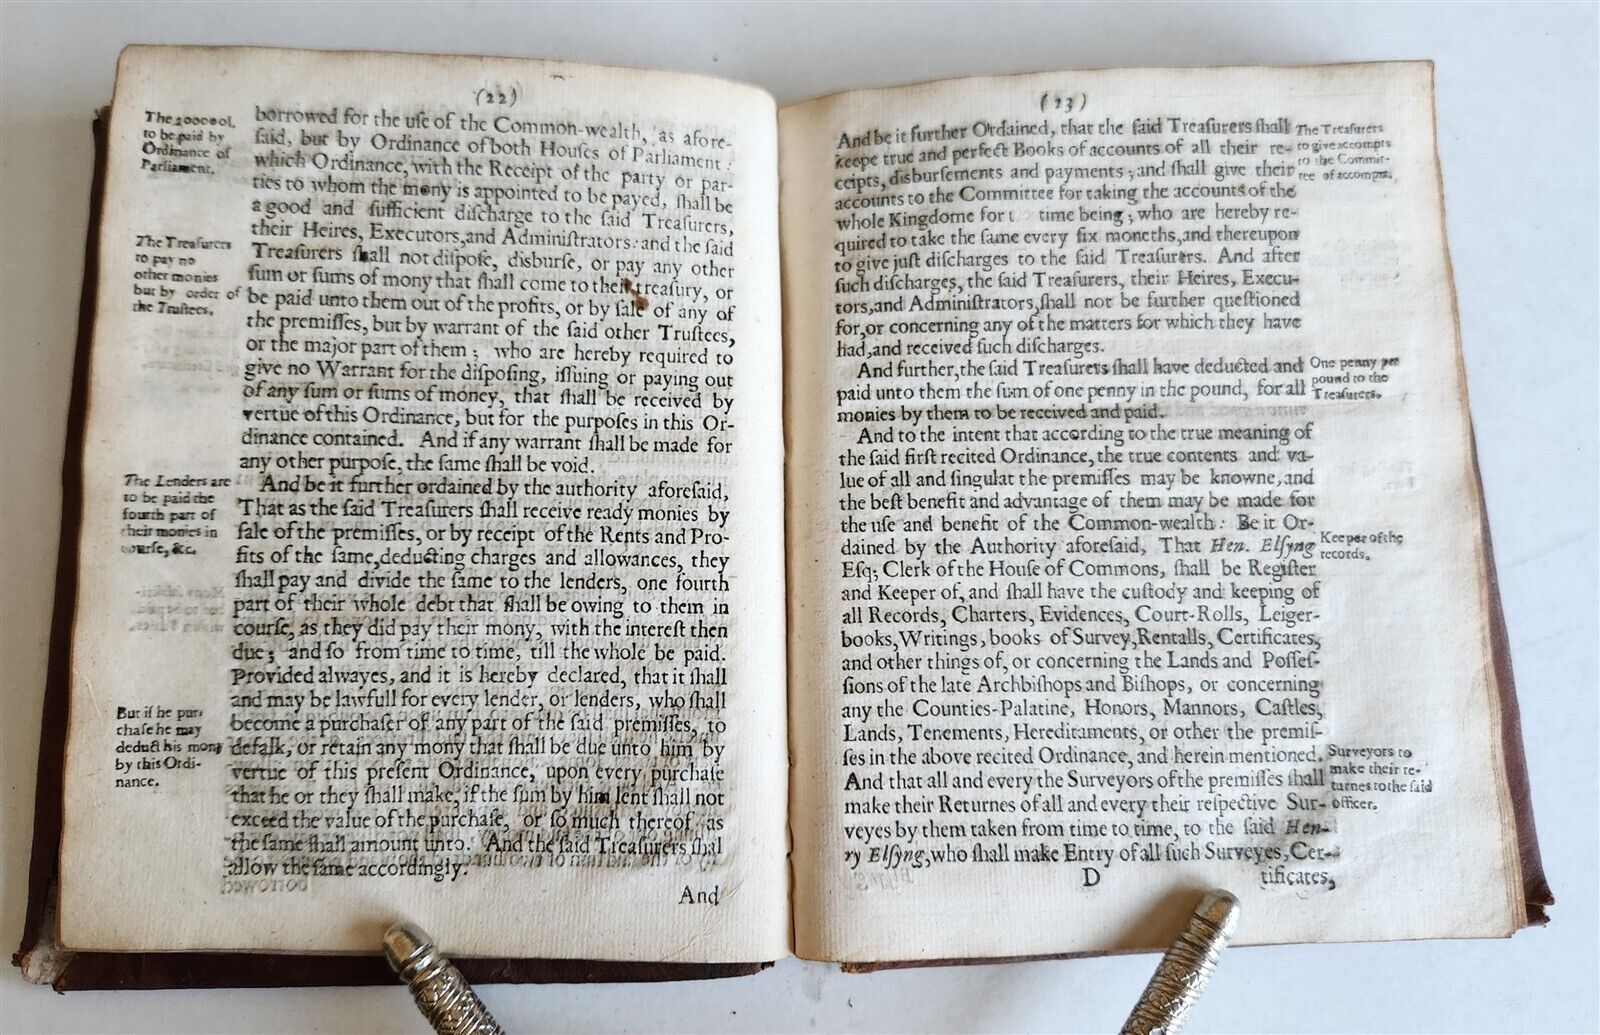 (22)
The 200000l.
to be paid by
Ordinance of
Parliament.
borrowed for the use of the Common-wealth, as afore-
ſaid, but by Ordinance of both Houſes of Parliament:
which Ordinance, with the Receipt of the party or par-
ties to whom the mony is appointed to be payed, ſhall be
a good and ſufficient diſcharge to the ſaid Treaſurers,
their Heires, Executors,and Adminiſtrators: and the ſaid
The Treaſurers
to pay no
other monies
but by order of
the Truſtees.
Treaſurers ſhall not diſpoſe, disburſe, or pay any other
ſum or ſums of mony that ſhall come to their treaſury, or
be paid unto them out of the profits, or by ſale of any of
the premiſſes, but by warrant of the ſaid other Truſtees,
or the major part of them; who are hereby required to
give no Warrant for the diſpoſing, iſſuing or paying out
of any ſum or ſums of money, that ſhall be received by
vertue of this Ordinance, but for the purpoſes in this Or-
dinance contained. And if any warrant ſhall be made for
any other purpoſe, the ſame ſhall be void.
The Lenders are
to be paid the
fourth part of
their monies in
courſe, &c.
And be it further ordained by the authority aforeſaid,
That as the ſaid Treaſurers ſhall receive ready monies by
ſale of the premiſſes, or by receipt of the Rents and Pro-
fits of the ſame,deducting charges and allowances, they
ſhall pay and divide the ſame to the lenders, one fourth
part of their whole debt that ſhall be owing to them in
courſe, as they did pay their mony, with the intereſt then
due; and ſo from time to time, till the whole be paid.
Provided alwayes, and it is hereby declared, that it ſhall
and may be lawfull for every lender, or lenders, who ſhall
But if he pur-
chaſe he may
deduct his mony
by this Ordi-
nance.
become a purchaſer of any part of the ſaid premiſſes, to
defalk, or retain any mony that ſhall be due unto him by
vertue of this preſent Ordinance, upon every purchaſe
that he or they ſhall make, if the ſum by him lent ſhall not
exceed the value of the purchaſe, or ſo much thereof as
the ſame ſhall amount unto. And the ſaid Treaſurers ſhal
allow the ſame accordingly.
And
(23)
And be it further Ordained, that the ſaid Treaſurers ſhall
keepe true and perfect Books of accounts of all their re-
ceipts, disburſements and payments; and ſhall give their
accounts to the Committee for taking the accounts of the
whole Kingdome for t time being; who are hereby re-
quired to take the ſame every ſix moneths,and thereupon
to give juſt diſcharges to the ſaid Treaſurers. And after
ſuch diſcharges, the ſaid Treaſurers, their Heires, Execu-
tors,and Adminiſtrators,ſhall not be further queſtioned
for,or concerning any of the matters for which they have
had,and received ſuch diſcharges.
The Treaſurers
to give accompts
to the Commit-
tee of accompts.
And further,the ſaid Treaſurers ſhall have deducted and
paid unto them the ſum of one penny in the pound, for all
monies by them to be received and paid.
One penny per
pound to the
Treaſurers.
And to the intent that according to the true meaning of
the ſaid firſt recited Ordinance, the true contents and va-
lue of all and ſingular the premiſſes may be knowne,and
the beſt benefit and advantage of them may be made for
the uſe and benefit of the Common-wealth: Be it Or-
dained by the Authority aforeſaid, That Hen. Elſyng
Eſq; Clerk of the Houſe of Commons, ſhall be Regiſter
and Keeper of, and ſhall have the cuſtody and keeping of
all Records, Charters, Evidences, Court-Rolls, Leiger-
books,Writings, books of Survey,Rentalls, Certificates,
and other things of, or concerning the Lands and Poſſeſ-
ſions of the late Archbiſhops and Biſhops, or concerning
any the Counties-Palatine, Honors, Mannors, Caſtles,
Lands, Tenements, Hereditaments, or other the premiſ-
ſes in the above recited Ordinance, and herein mentioned.
Keeper of the
records.
And that all and every the Surveyors of the premiſſes ſhall
make their Returnes of all and every their reſpective Sur-
veyes by them taken from time to time, to the ſaid Hen-
ry Elſyng,who ſhall make Entry of all ſuch Surveyes, Cer-
Surveyors to
make their re-
turnes to the ſaid
officer.
D
tificates,